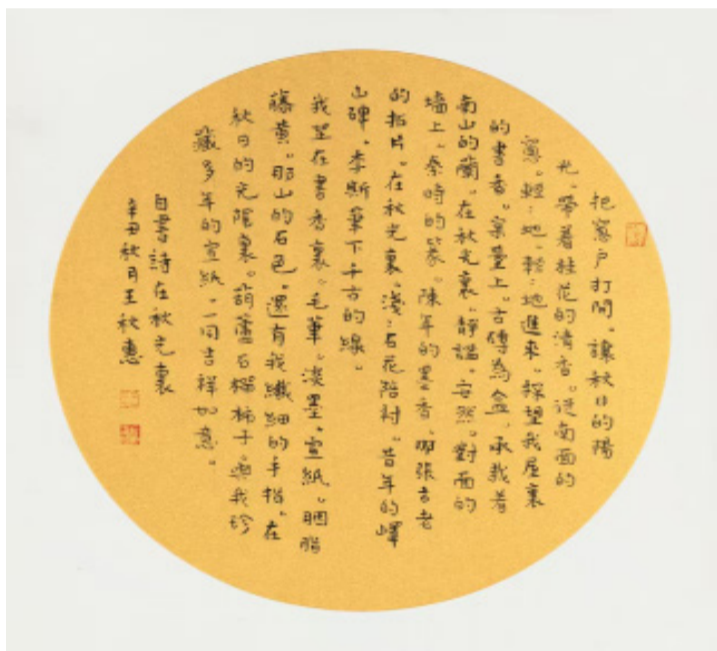 把窗户打開。讓秋日的陽
光。帶着桂花的清香。從南面的
窗。輕:地。輕:地進來。探望我屋裏
的書香。案臺上。古磚為盆。承載着
南山的蘭。在秋光裏。靜謐。安然。對面的
墻上。秦時的篆。陳年的墨香。那張古老
的拓片。在秋光裏。淺:石花陪衬。昔年的嶧
山碑。李斯筆下千古的線。
我坐在書香裏。毛筆。淡墨。宣紙。胭脂
藤黄。那山的石色。還有我纖細的手指。在
秋日的光陰裏。葫蘆石榴柿子。與我珍
藏多年的宣紙。一同吉祥如意。
自書詩在秋光裏
辛丑秋月王秋惠